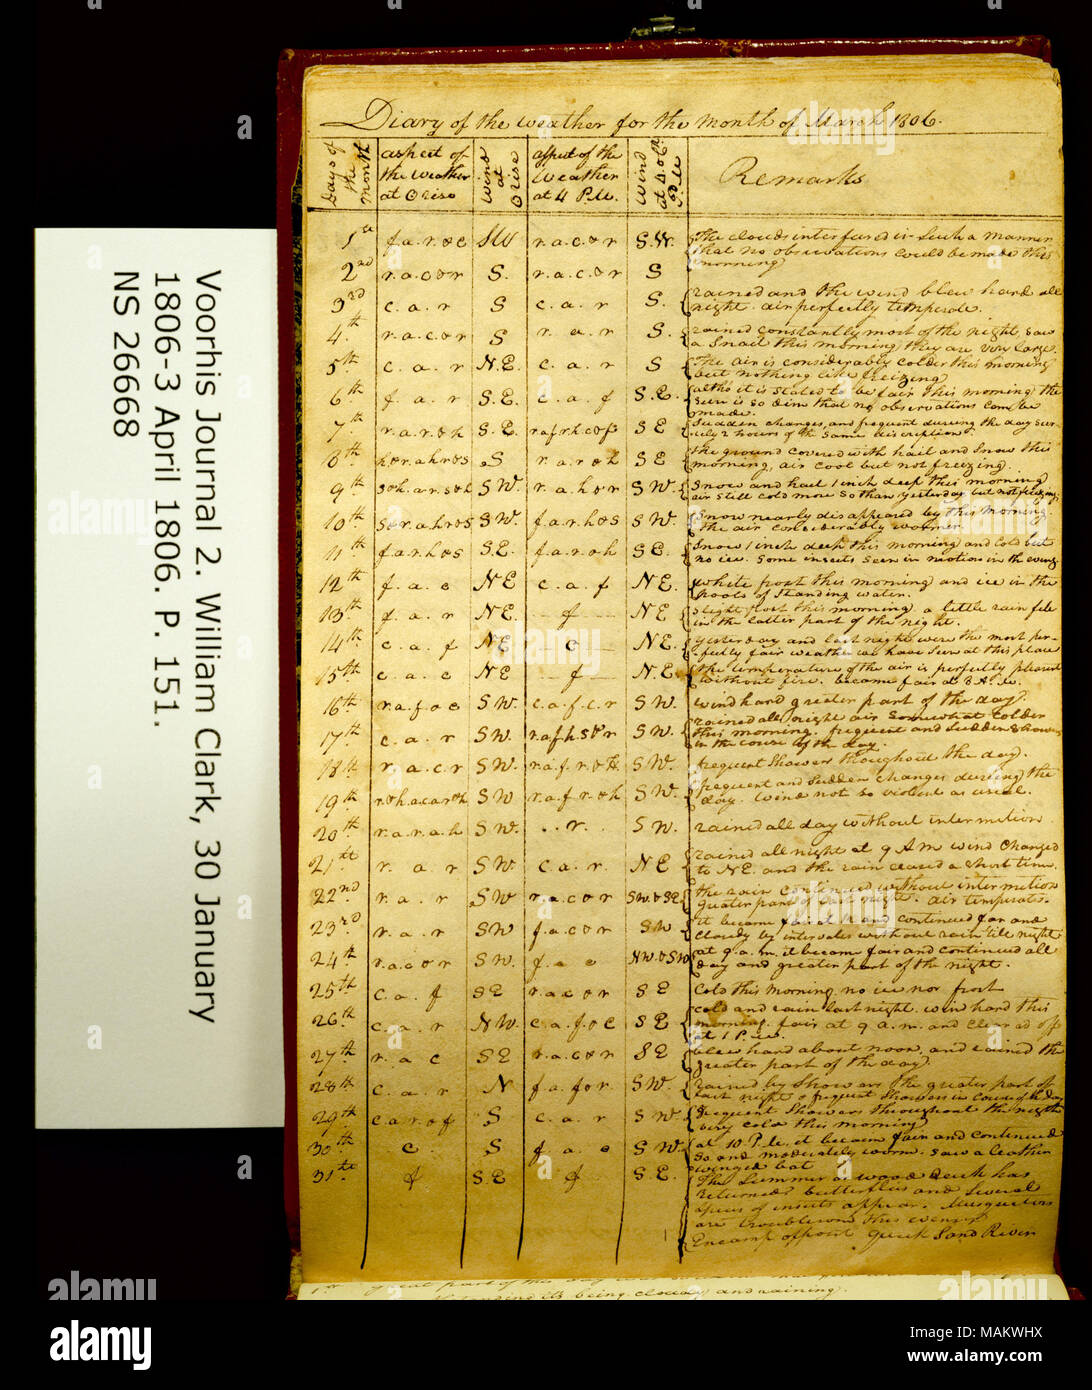 Diary of the weather for the month of March 1806.
Days of the month | aspect of the weather at ☉ rise | Wind at ☉ rise | aspect of the Weather at 4 P.M. | Wind at 4 P.M. | Remarks
1st f.a.r.&c SW r.a.c.&r S.W. The clouds interfered in such a manner
that no observations could be made this
morning
2nd r.a.c&r S. r.a.c.&r S
3rd c.a.r S c.a.r S. rained and the wind blew hard all
night. air perfectly temperate.
4th r.a.c&r S r.a.r S. rained constantly most of the night, saw
a Snail this morning, they are very large.
5th c.a.r N.E. c.a.r S The air is considerably colder this morning
but nothing like freezing
6th f.a.r S.E. c.a.f S.E. altho it is stated to be fair this morning the
sun is so dim that no observations can be
made.
7th r.a.r.&h S.E. r.a.f.r.h.c&f S E Sudden changes, and frequent during the day,
2 hours of the same discription.
8th h&r.a.h.r&s S r.a.r&h S E the ground covered with hail and Snow this
morning, air cool but not freezing
9th s&h.a.r.s&h S W. r.a.h&r S W. Snow and hail 1 inch deep this morning
air still cold more so than yesterday but not freezing
10th s&r.a.h.r&s S W. f.a.r.h&s S W. Snow nearly disappeared by this morning.
the air considerably warmer
11th f.a.r.h&s S.E. f.a.r.&h S E. Snow 1 inch deep this morning and cold but
no ice. Some insects seen in motion in the eveng
12th f.a.c N E c.a.f N E. White frost this morning and ice in the
pools of standing water.
13th f.a.r N E. f N E slight frost this morning. a little rain fell
in the latter part of the night.
14th c.a.f N E. c N E. yesterday and last night were the most per-
fectly fair weather we have seen at this place
15th c.a.c N E f N.E. the temperature of the air is perfectly pleasent
without fire. became fair at 8 A.M.
16th r.a.f&c S W. c.a.f.c.r S W. wind hard greater part of the day.
17th c.a.r S W. r.a.f.h.s&r S W. rained all night air somewhat colder
this morning. frequent and sudden Showers
in the course of the day.
18th r.a.c.r S W. r.a.f.r.&h S W. frequent Showers throughout the day.
19th r&h.a.c.a.r&h S W r.a.f.r.&h S W. frequent and sudden changes during the
day. wind not so violent as usual.
20th r.a.r.a.h S W. ..r. S W. rained all day without intermition.
21st r.a.r S W. c.a.r N E rained all night at 9 A M wind changed
to N E. and the rain ceased a short time.
22nd r.a.r S W r.a.c&r SW.&SE. the rain continued without intermition
greater part of last night. air temperate.
23rd r.a.r S W f.a.c&r S W it became fair at 12 and continued fair and
cloudy by intervales without rain till night
24th r.a.c&r S W. f.a.c N W.&S W at 9 a.m. it became fair and continued all
day and greater part of the night.
25th c.a.f S E r.a.c&r S E cold this morning, no ice nor frost
26th c.a.r N W. c.a.f.&c S E cold and rain last night. wind hard this
morning. fair at 9 a.m. and cloud up
at 1 P.M.
27th r.a.c S E r.a.c&r S E blew hard about noon, and rained the
greater part of the day.
28th c.a.r N f.a.f&r S W. rained by Showers the greater part of
last night & frequent Showers in course of the day
29th c.a.r.&f S c.a.r S W. frequent Showers throughout the night
very cold this morning
30th c. S f.a.c S W. at 10 P.M. it became fair and continued
so and moderately worm. Saw a leathern
winged bat
31st f S.E f S E. The Summer or wood duck has
returned. butterflies and Several
spices of insects appear. Musquetors
are troublesom this evening
Encamp opposit quick Sand River
great part of the day
its being cloudy and raining.
Voorhis Journal 2. William Clark, 30 January
1806-3 April 1806. P. 151.
NS 26668
alamy
Image ID: MAKWHX
www.alamy.com